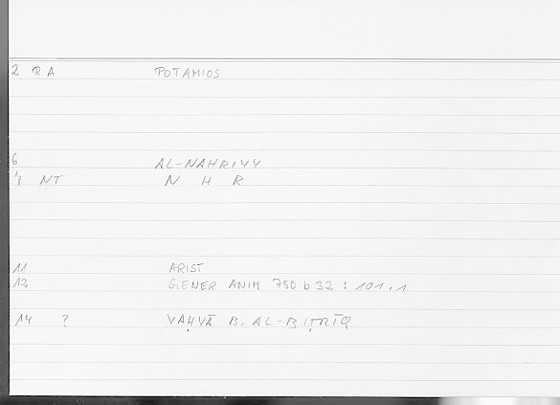 2 RA POTAMIOS
6 AL-NAHRIYY
7 NT N H R
11 ARIST
12 GENER ANIM 750 b 32 : 101.1
14 ? YAḤYĀ B. AL-BIṬRĪQ